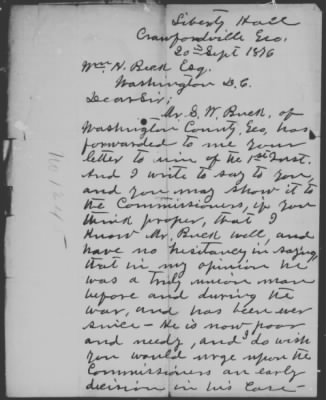 Liberty Hall
Crawfordville Geo.
20th Sept 1876
Wm N. Beck Esq.
Washington D.C.
Dear Sir;
Mr. S. W. Buck, of
Washington County, Geo, has
forwarded to me your
letter to him of the 1st Inst.
And I write to say to you,
and you may show it to
the Commissioners, if you
think proper, that I
know Mr. Buck well, and
have no hesitancy in saying
that in my opinion he
was a truly union man
before and during the
war, and has been ever
since — He is now poor
and needy, and I do wish
you would urge upon the
Commissioners an early
decision in his case —
No 124